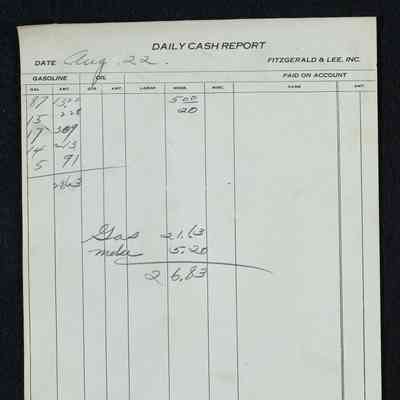 DAILY CASH REPORT
DATE Aug 22. FITZGERALD & LEE, INC.
GASOLINE OIL PAID ON ACCOUNT
GAL. AMT. QTR. AMT. LABOR MDSE. MISC. NAME AMT.
87 13.22 500
15 228 20
17 309
14 213
5 91
2163
Gas 21.63
mdse 5.20
26.83